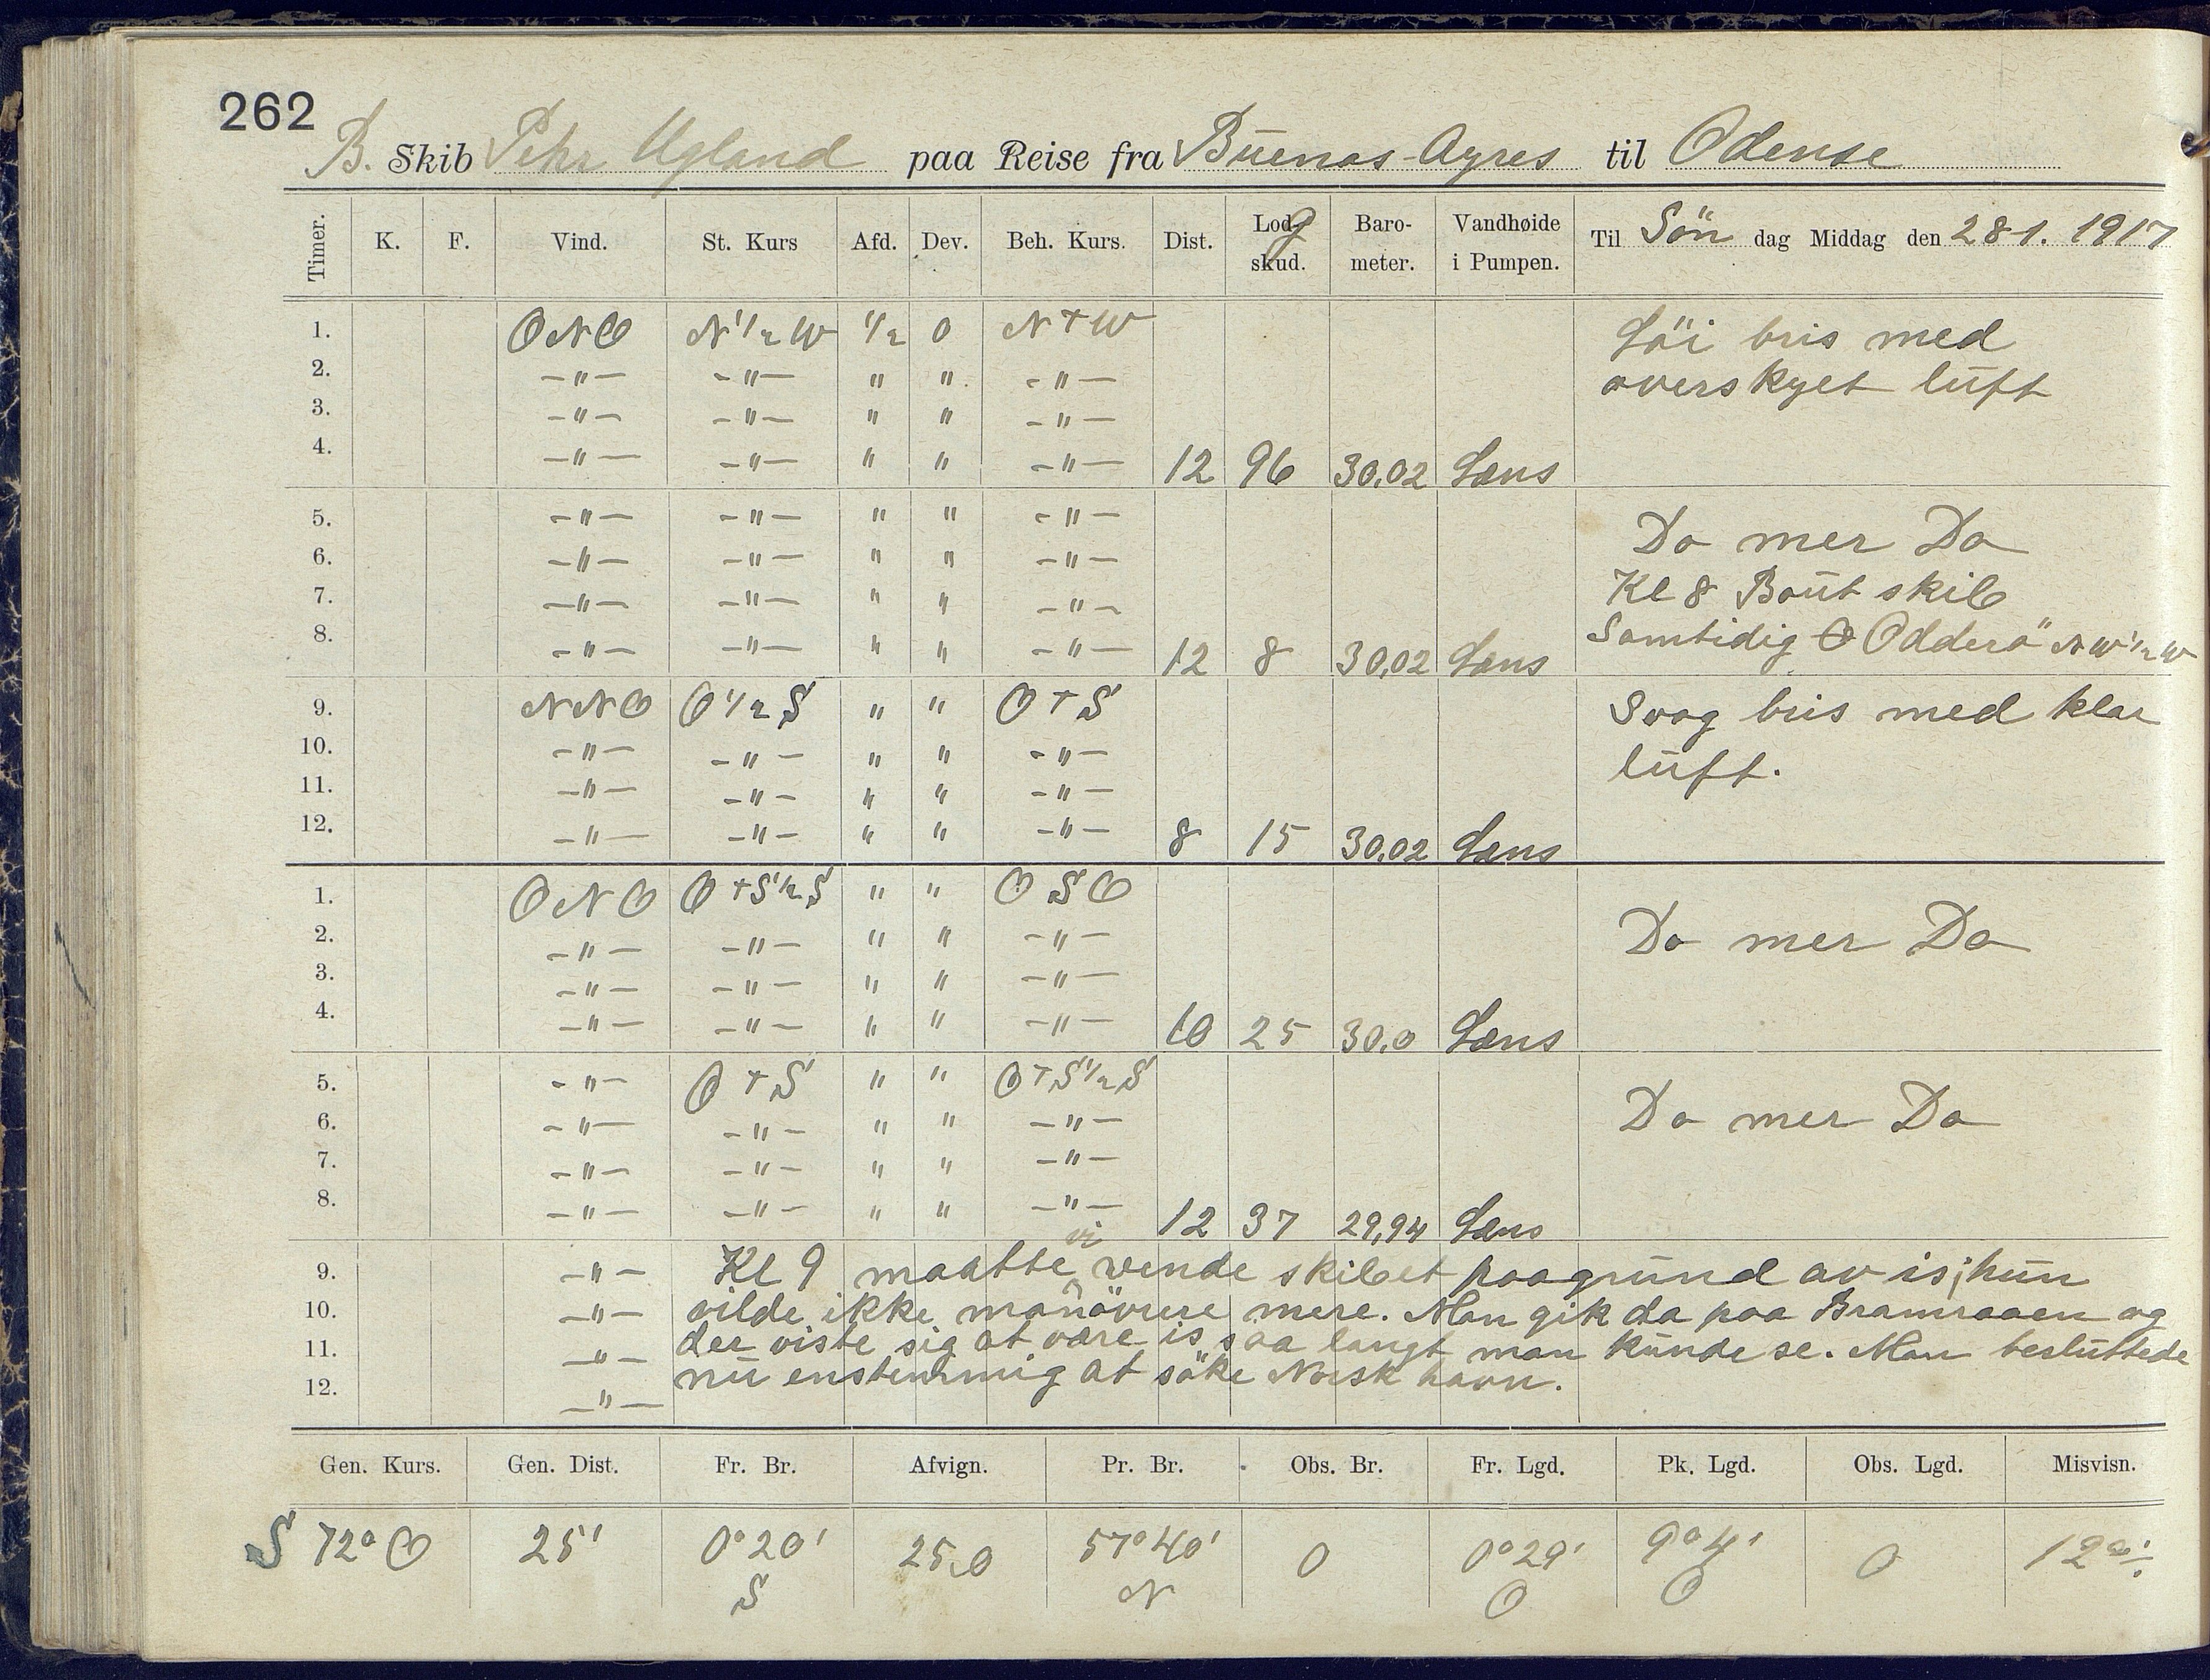 262
B. Skib Pehr Ugland paa Reise fra Buenos-Ayres til Odense
Timer. K. F. Vind. St. Kurs Afd. Dev. Beh. Kurs. Dist. Lodg skud. Baro-meter. Vandhøide i Pumpen. Til Sön dag Middag den 28-1. 1917
1. ONO N 1/2 W 1/2 0 N + W Löi bris med
2. -"- -"- " " -"- overskyet luft
3. -"- -"- " " -"-
4. -"- -"- " " -"- 12 96 30.02 Læns
5. -"- -"- " " -"- Do mer Do
6. -"- -"- " " -"-
7. -"- -"- " " -"- Kl 8 Bout skib
8. -"- -"- " " -"- 12 8 30,02 Læns Samtidig O Odderö" NW 1/2 W
9. NNO O 1/2 S " " O + S Svag bris med klar
10. -"- -"- " " -"- luft.
11. -"- -"- " " -"-
12. -"- -"- " " -"- 8 15 30.02 Læns
1. ONO O + S 1/2 S " " OSO
2. -"- -"- " " -"- Do mer Do
3. -"- -"- " " -"-
4. -"- -"- " " -"- 10 25 30.0 Læns
5. -"- O + S " " O + S 1/2 S
6. -"- -"- " " -"- Do mer Do
7. -"- -"- " " -"-
8. -"- -"- " " -"- 12 37 29,94 Læns
9. -"- Kl 9 maatte vi vende skibet paagrund av is; hun
10. -"- vilde ikke manövrere mere. Man gik da paa Bramraaen og
11. -"- der viste sig at være is saa langt man kunde se. Man besluttede
12. -"- nu enstemmig at söke Norsk havn.
Gen. Kurs. Gen. Dist. Fr. Br. Afvign. Pr. Br. Obs. Br. Fr. Lgd. Pk. Lgd. Obs. Lgd. Misvisn.
S 72° O 25' 0° 20' S 25,0 57° 40' N 0 0° 29' O 9° 4' O 0 12°